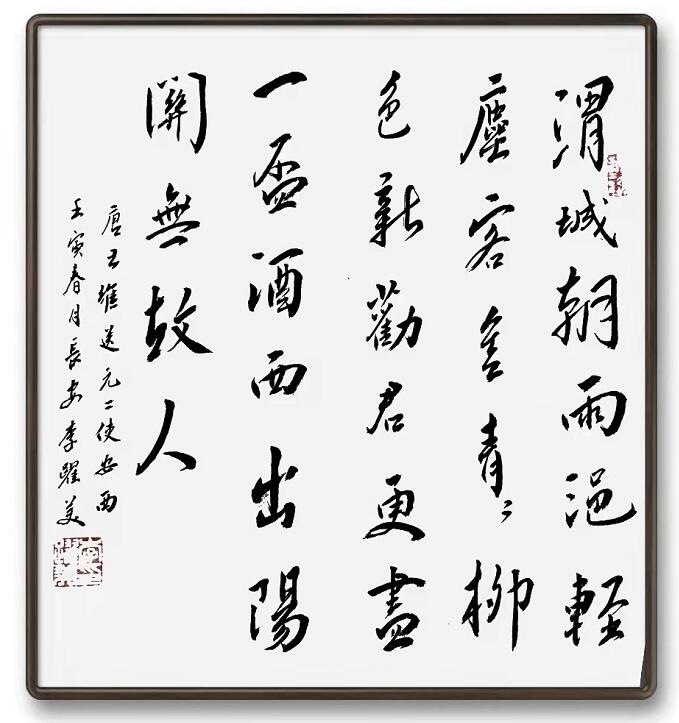 渭城朝雨浥輕
塵客舍青〻柳
色新勸君更盡
一盃酒西出陽
關無故人
唐王維送元二使安西
壬寅春月長安李美